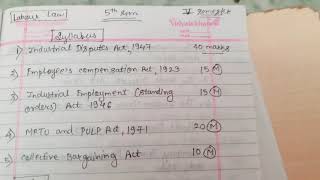 Labour Law 5th sem V semester
Vidyalekhan
Syllabus
1) Industrial Disputes Act, 1947 40 marks
2) Employee's compensation Act, 1923 15 M
3) Industrial Employment (standing
orders) Act 1946 15 M
4) MRTU and PULP Act, 1971 20 M
5) collective Bargaining Act 10 M